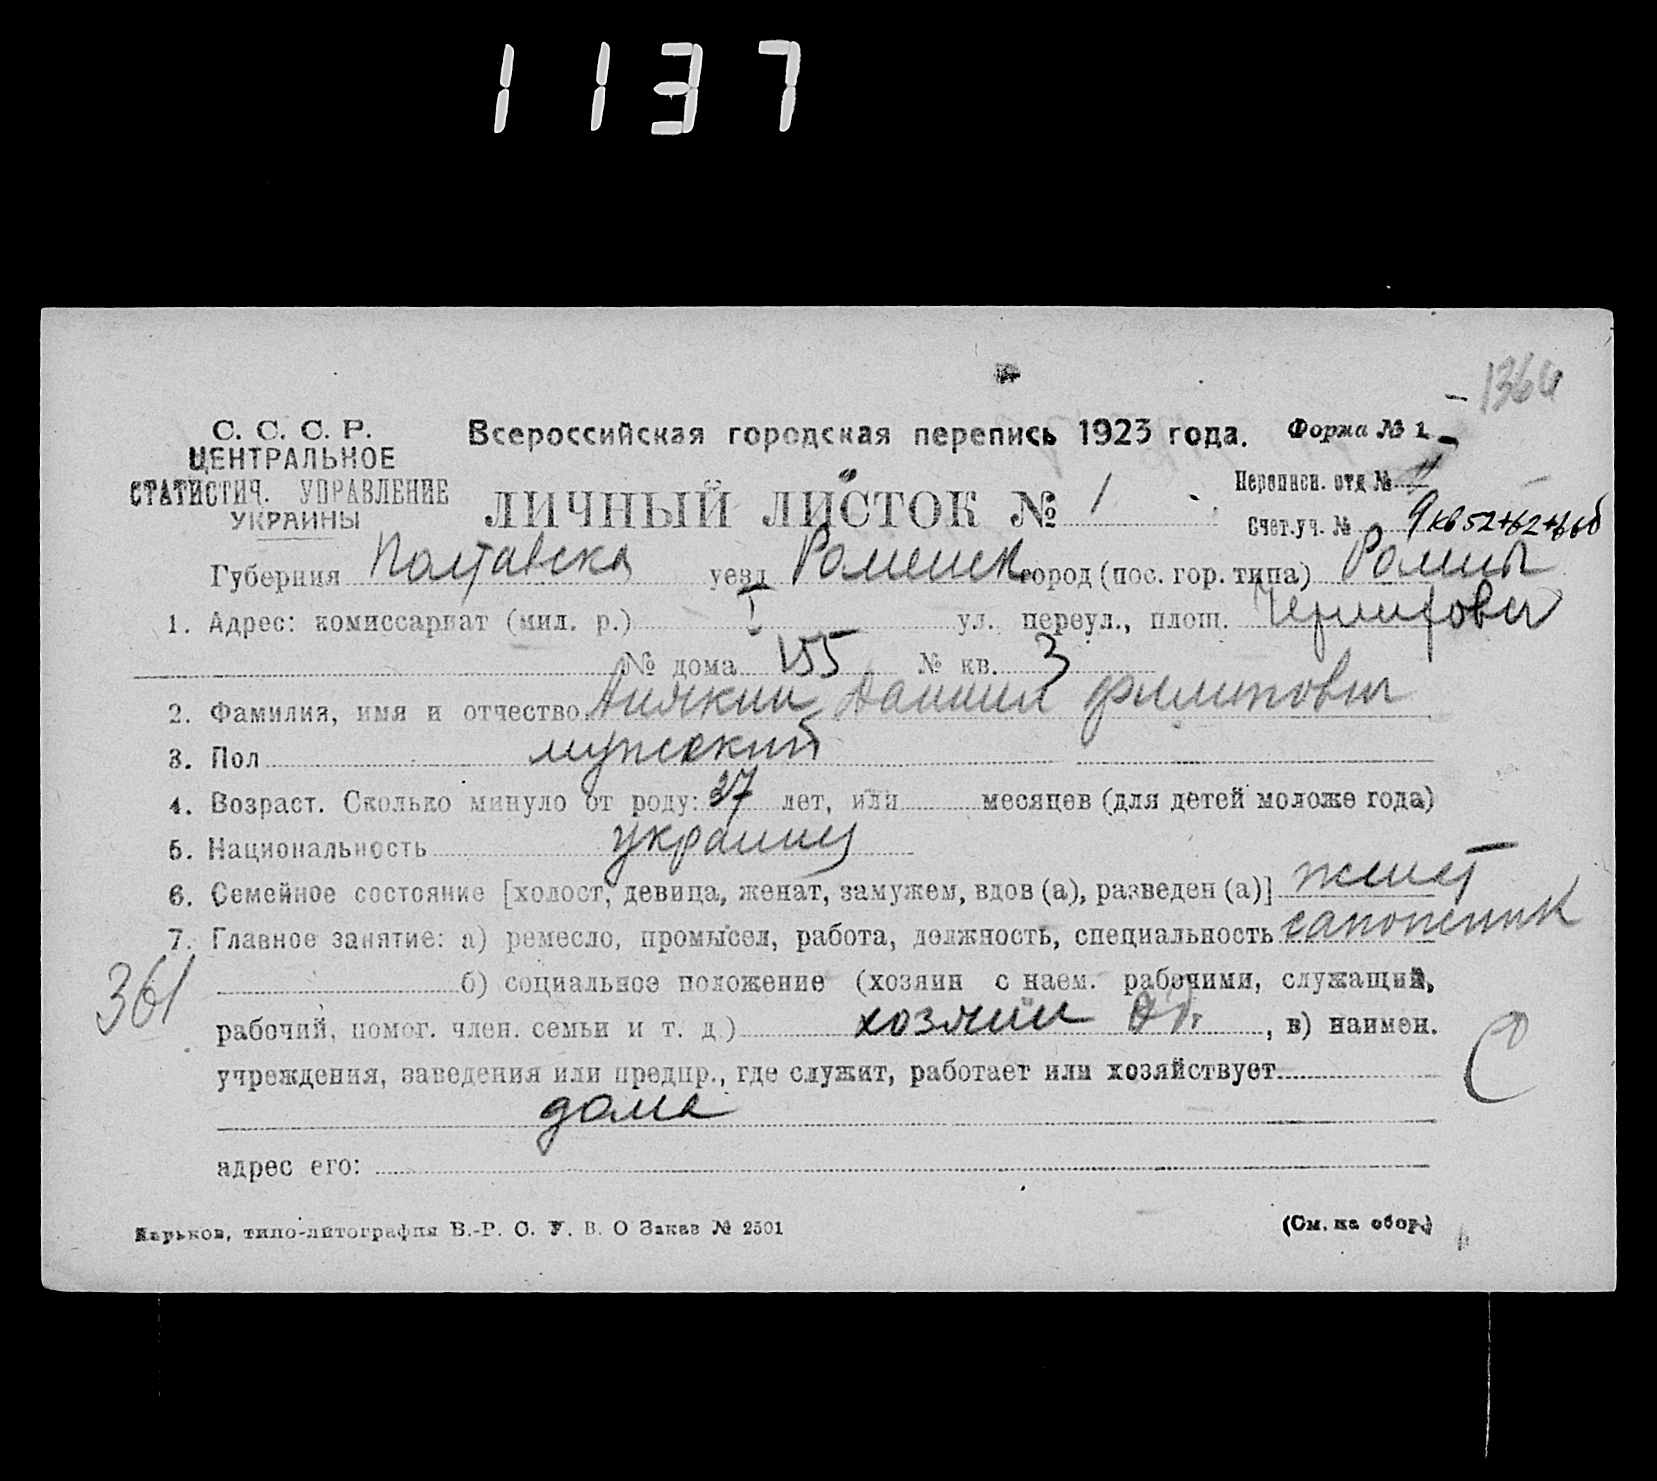 1137
1364
С. С. С. Р.
ЦЕНТРАЛЬНОЕ
СТАТИСТИЧ. УПРАВЛЕНИЕ
УКРАИНЫ
Всероссийская городская перепись 1923 года.
Форма № 1
ЛИЧНЫЙ ЛИСТОК № 1
Переписн. отд №
Счет.уч. № 9
Губерния Полтавска уезд Роменск город (пос. гор. типа) Ромны
1. Адрес: комиссариат (мил. р.) I ул. переул., площ.
№ дома 155 № кв. 3
2. Фамилия, имя и отчество Даниил Филипович
3. Пол мужский
4. Возраст. Сколько минуло от роду: 37 лет, или месяцев (для детей моложе года)
5. Национальность украинец
6. Семейное состояние [холост, девица, женат, замужем, вдов (а), разведен (а)] женат
7. Главное занятие: а) ремесло, промысел, работа, должность, специальность сапожник
361
б) социальное положение (хозяин с наем. рабочими, служащий,
рабочий, помог. член. семьи и т. д.) хозяин , в) наимен.
учреждения, заведения или предпр., где служит, работает или хозяйствует
дома
С
адрес его:
Харьков, типо-литография В.-Р. С. У. В. О Заказ № 2501
(См. на обор.)